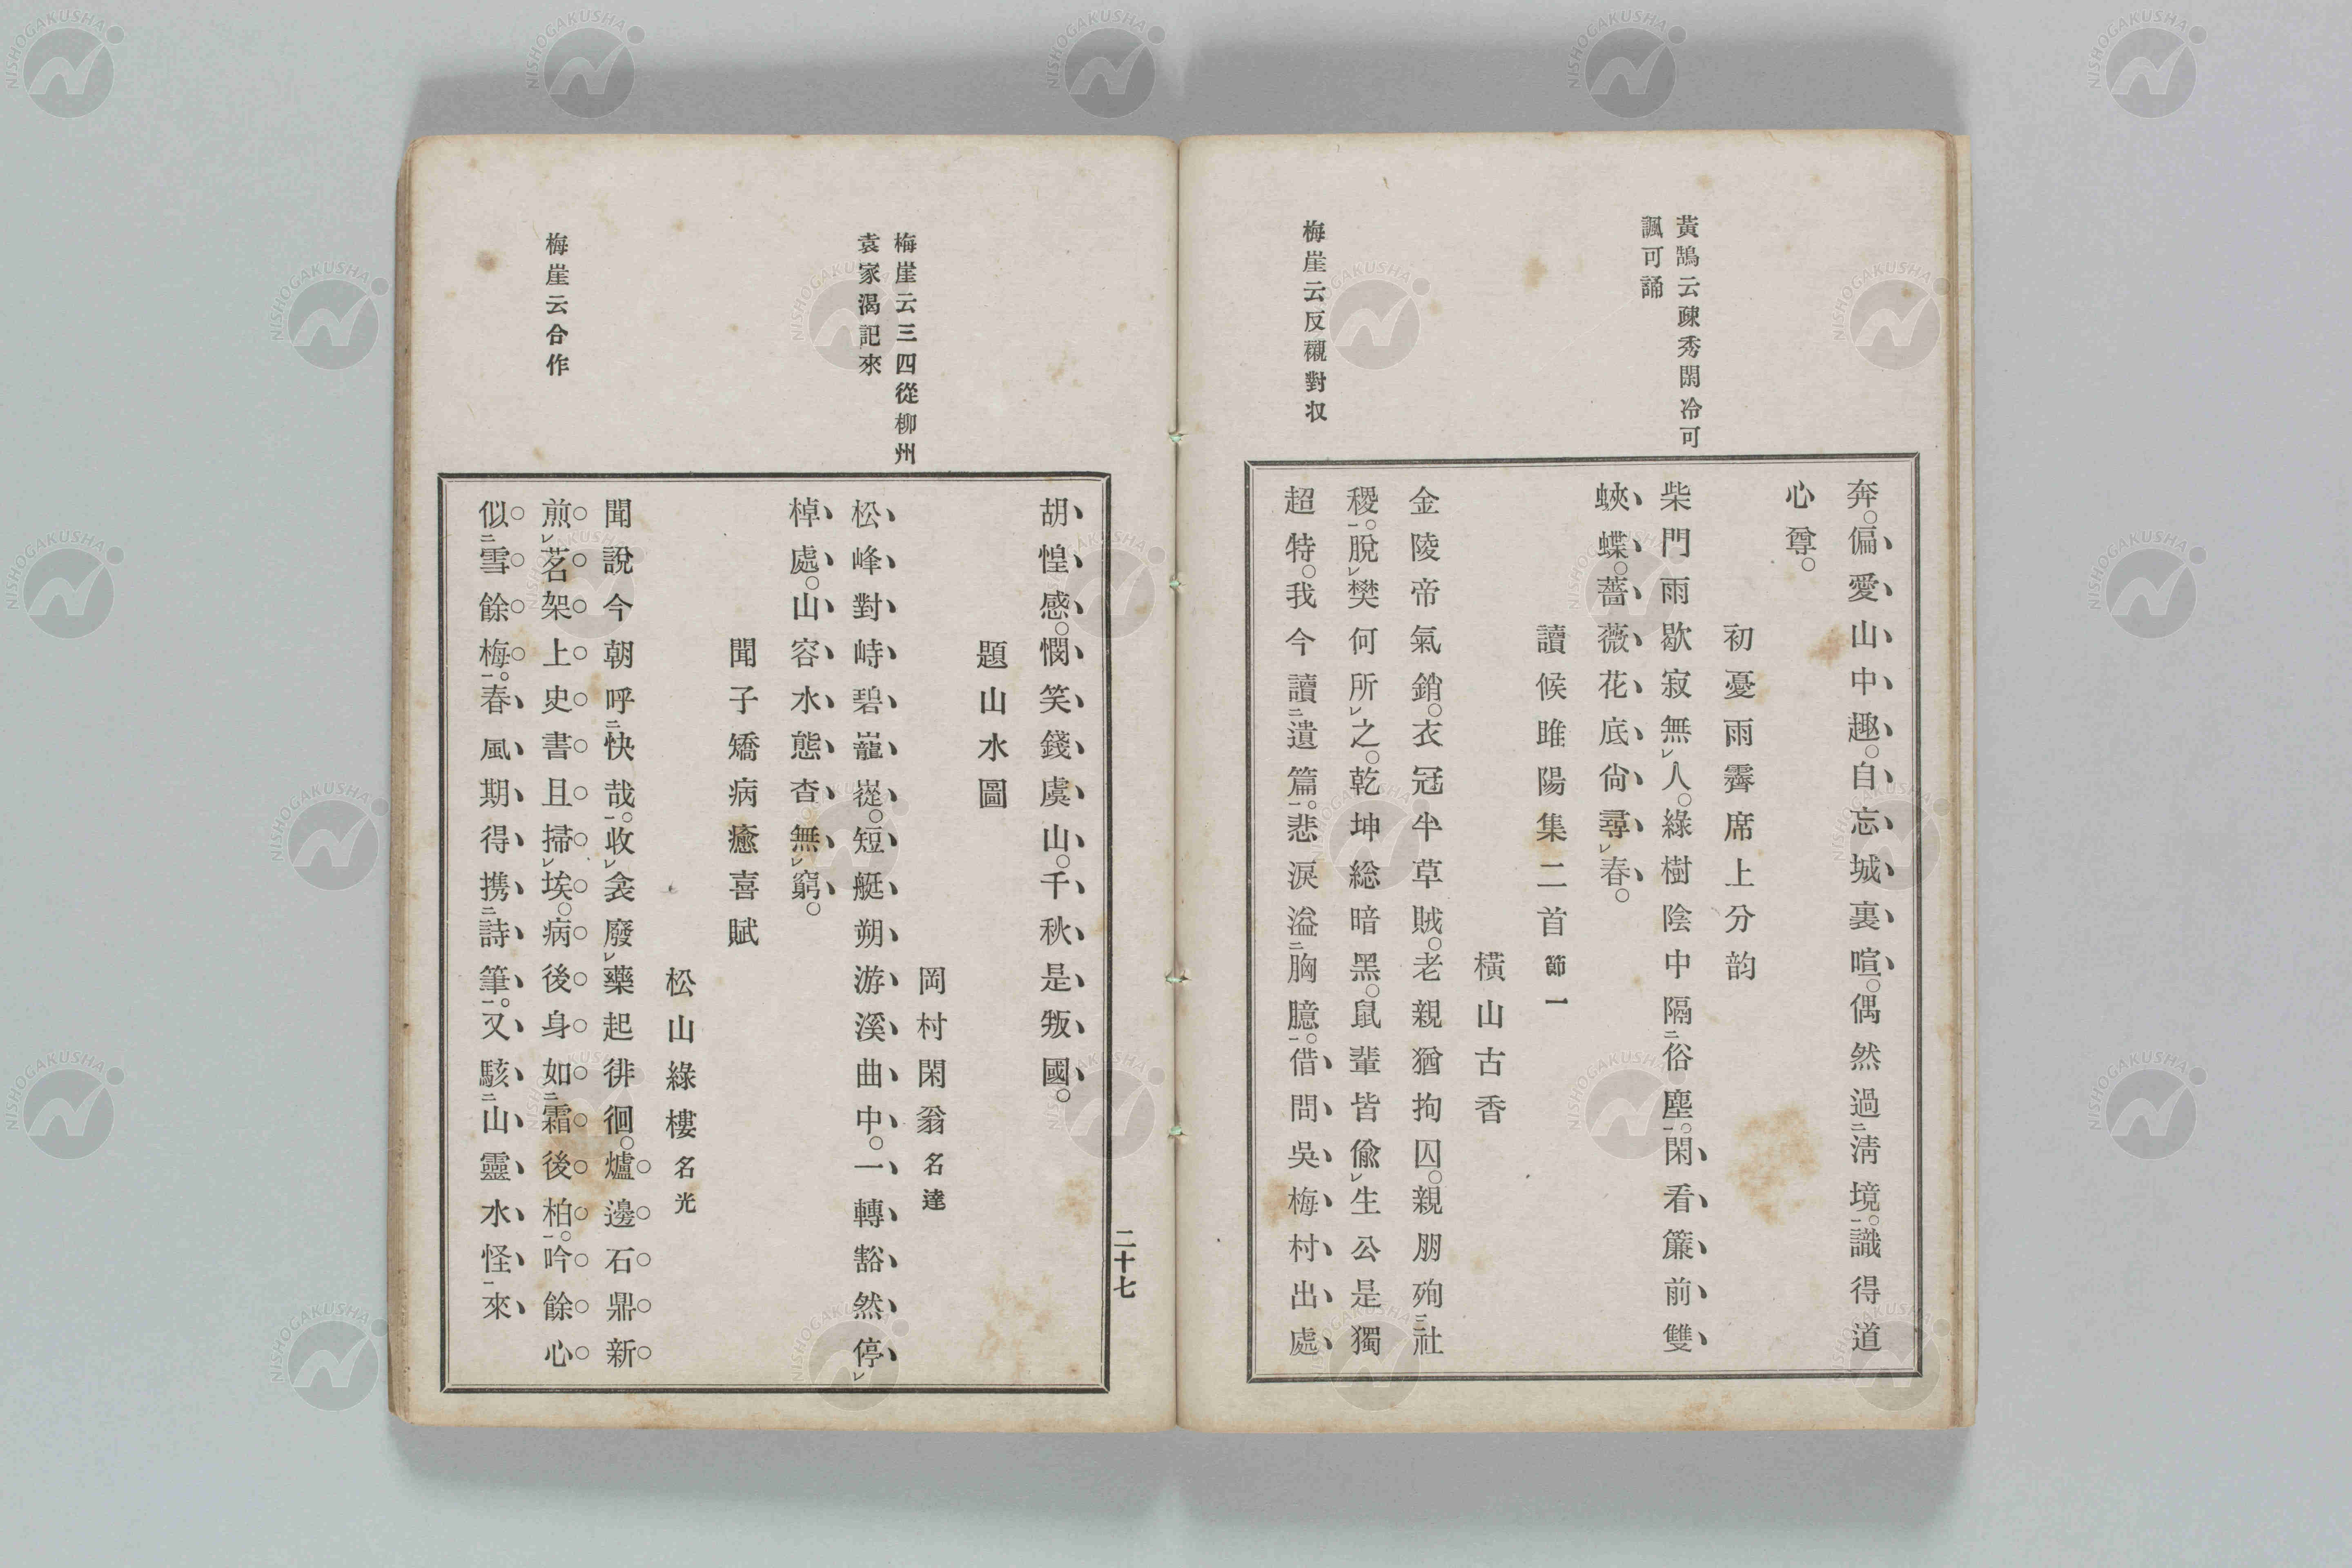 黃鵠云疎秀閑冷可
諷可誦
梅崖云反襯對収
奔。偏愛山中趣。自忘城裏喧。偶然過淸境。識得道
心尊。
初憂雨霽席上分韵
柴門雨歇寂無人。綠樹陰中隔俗塵。閑看簾前雙
蛺蝶。薔薇花底尙尋春。
讀候雎陽集二首節一
橫山古香
金陵帝氣銷。衣冠半草賊。老親猶拘囚。親朋殉社
稷。脫樊何所之。乾坤総暗黑。鼠輩皆偸生公是獨
超特。我今讀遺篇。悲淚溢胸臆。借問吳梅村出處
梅崖云三四從柳州
袁家渴記來
梅崖云合作
胡惶感。憫笑錢虞山。千秋是叛國。
題山水圖
岡村閑翁名達
松峰對峙碧巃嵸。短艇朔游溪曲中。一轉豁然停
棹處。山容水態杳無窮。
聞子矯病癒喜賦
松山綠樓名光
聞說今朝呼快哉。收衾廢藥起徘徊。爐邊石鼎新
煎茗架上史書且掃埃。病後身如霜後柏。吟餘心
似雪餘梅。春風期得携詩筆。又駭山靈水怪來
二十七
NISHOGAKUSHA